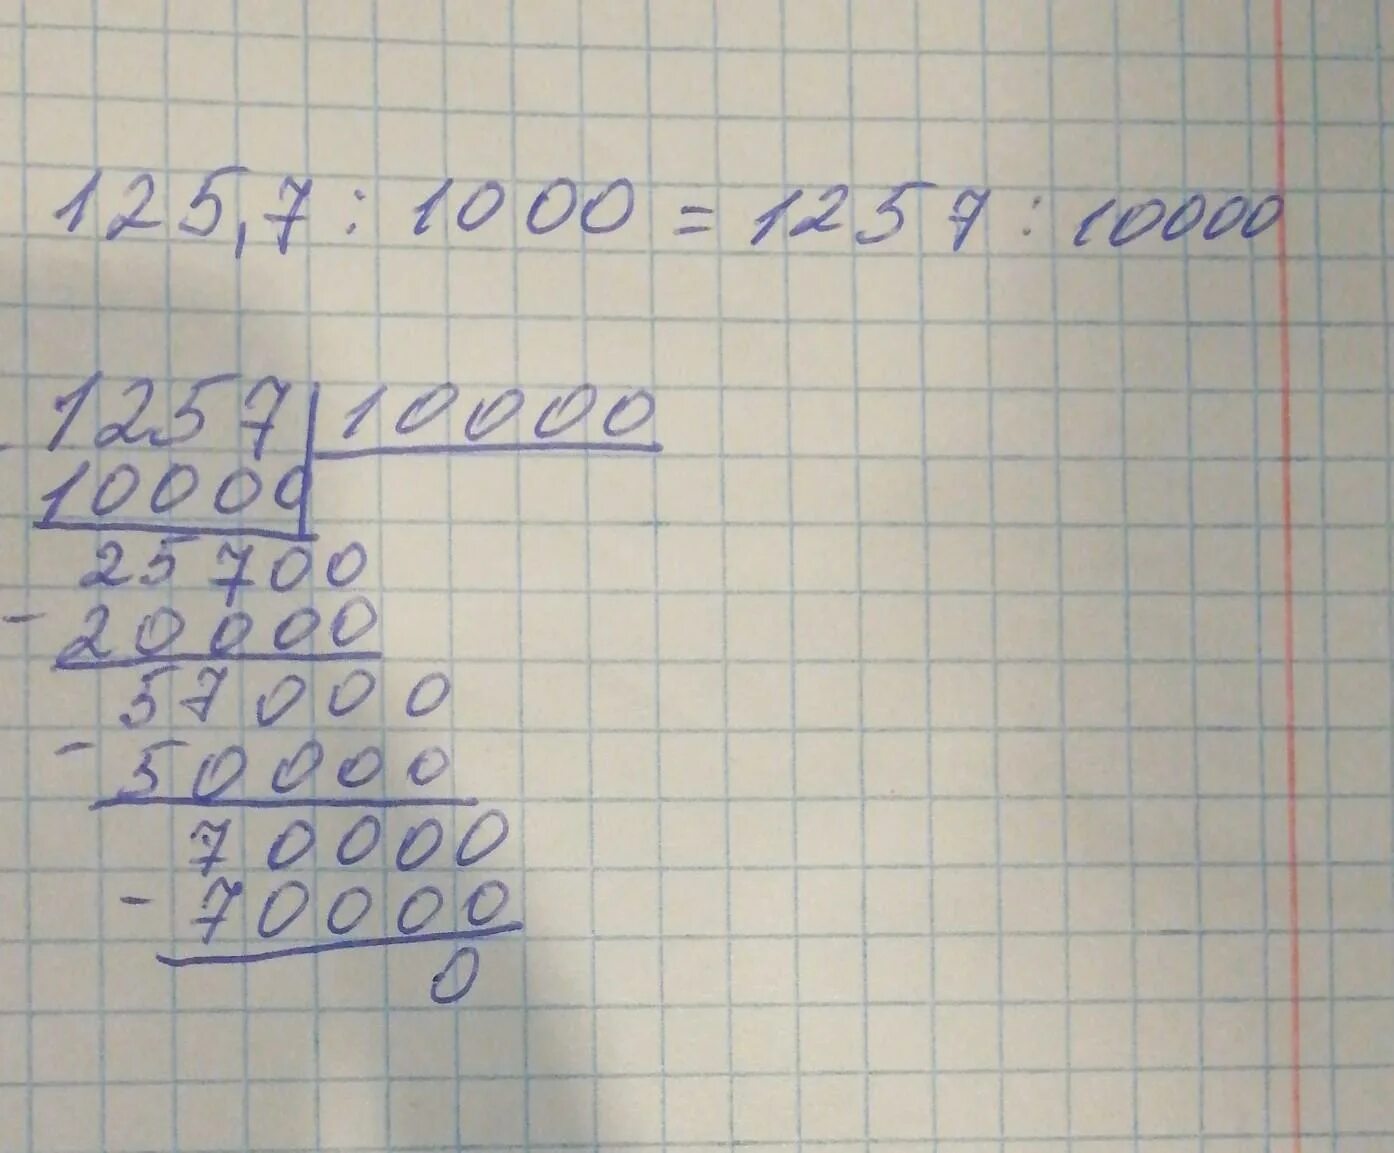 125,7 : 1000 = 1257 : 10000
- 1257 | 10000
10000
25700
- 20000
57000
- 50000
70000
- 70000
0